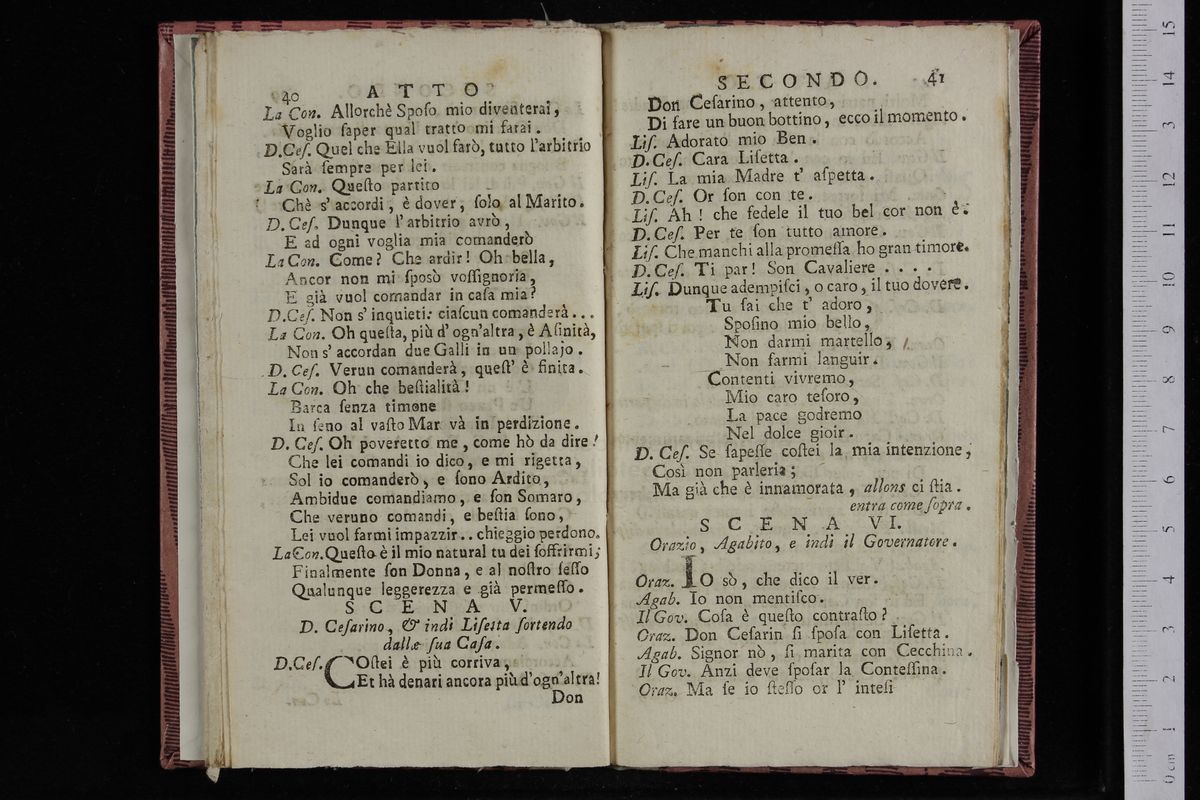 40 ATTO
La Con. Allorchè Spoſo mio diventerai,
Voglio ſaper qual tratto mi farai.
D.Ceſ. Quel che Ella vuol farò, tutto l'arbitrio
Sarà ſempre per lei.
La Con. Queſto partito
Chè s' accordi, è dover, ſolo al Marito.
D. Ceſ. Dunque l' arbitrio avrò,
E ad ogni voglia mia comanderò
La Con. Come? Che ardir! Oh bella,
Ancor non mi ſposò voſſignoria,
E già vuol comandar in caſa mia?
D.Ceſ. Non s' inquieti: ciaſcun comanderà...
La Con. Oh queſta, più d' ogn'altra, è Aſinità,
Non s' accordan due Galli in un pollajo.
D. Ceſ. Verun comanderà, queſt' è finita.
La Con. Oh che beſtialità!
Barca ſenza timone
In ſeno al vaſto Mar và in perdizione.
D. Ceſ. Oh poveretto me, come hò da dire!
Che lei comandi io dico, e mi rigetta,
Sol io comanderò, e ſono Ardito,
Ambidue comandiamo, e ſon Somaro,
Che veruno comandi, e beſtia ſono,
Lei vuol farmi impazzir.. chieggio perdono.
La Con. Queſto è il mio natural tu dei ſoffrirmi;
Finalmente ſon Donna, e al noſtro ſeſſo
Qualunque leggerezza e già permeſſo.
SCENA V.
D. Ceſarino, & indi Liſetta ſortendo
dalla ſua Caſa.
D.Ceſ. COſtei è più corriva,
Et hà denari ancora più d'ogn'altra!
Don
SECONDO. 41
Don Ceſarino, attento,
Di fare un buon bottino, ecco il momento.
Liſ. Adorato mio Ben.
D. Ceſ. Cara Liſetta.
Liſ. La mia Madre t' aſpetta.
D. Ceſ. Or ſon con te.
Liſ. Ah! che fedele il tuo bel cor non è.
D. Ceſ. Per te ſon tutto amore.
Liſ. Che manchi alla promeſſa ho gran timore.
D. Ceſ. Ti par! Son Cavaliere ....
Liſ. Dunque adempiſci, o caro, il tuo dovere.
Tu ſai che t' adoro,
Spoſino mio bello,
Non darmi martello,
Non farmi languir.
Contenti vivremo,
Mio caro teſoro,
La pace godremo
Nel dolce gioir.
D. Ceſ. Se ſapeſſe coſtei la mia intenzione,
Così non parleria;
Ma già che è innamorata, allons ci ſtia.
entra come ſopra.
SCENA VI.
Orazio, Agabito, e indi il Governatore.
Oraz. IO sò, che dico il ver.
Agab. Io non mentiſco.
Il Gov. Coſa è queſto contraſto?
Oraz. Don Ceſarin ſi ſpoſa con Liſetta.
Agab. Signor nò, ſi marita con Cecchina.
Il Gov. Anzi deve ſpoſar la Conteſſina.
Oraz. Ma ſe io ſteſſo or l' inteſi
15
14
13
12
11
10
9
8
7
6
5
4
3
2
1
0 cm